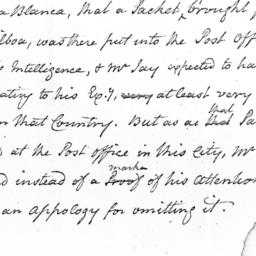 a Blanca, that a Packet, brought
lboa, was there put into the Post Off
s Intelligence, & Mr Jay expected to ha
ating to his Exy, very at least very
m that Country. But as a that that Pa
d at the Post office in this City, Mr
d instead of a marke Proof of his attention
an appology for omitting it.